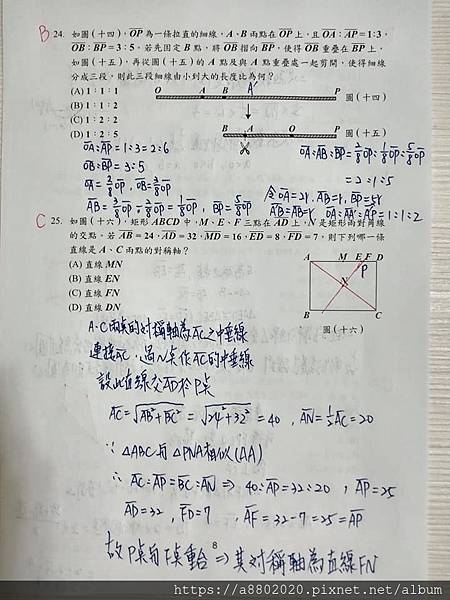 B 24. 如圖(十四)，OP為一條拉直的細線，A、B兩點在OP上，且OA：AP=1:3，
OB：BP=3：5。若先固定B點，將OB摺向BP，使得OB重疊在BP上，
如圖(十五)，再從圖(十五)的A點及與A點重疊處一起剪開，使得細線
分成三段，則此三段細線由小到大的長度比為何？
(A) 1：1：1
(B) 1：1：2
(C) 1：2：2
(D) 1：2：5
O A B A' P 圖(十四)
B A O P 圖(十五)
OA：AP=1:3=2:6
OB：BP=3:5
OA=2/8OP，OB=3/8OP
AB=3/8OP-2/8OP=1/8OP，BP=5/8OP
OA：AB：BP=2/8OP：1/8OP：5/8OP
=2:1:5
令OA=2r，AB=r，BP=5r
A'B=AB=r，OA：AA'：A'P=1:1:2
C 25. 如圖(十六)，矩形ABCD中，M、E、F三點在AD上，N是矩形兩對角線
的交點。若AB=24，AD=32，MD=16，ED=8，FD=7，則下列哪一條
直線是A、C兩點的對稱軸？
(A) 直線MN
(B) 直線EN
(C) 直線FN
(D) 直線DN
A M E F D
P
N
B C
圖(十六)
A、C兩點的對稱軸為AC之中垂線
連接AC，過N點作AC的中垂線
設此直線交AD於P點
AC=√AB²+BC²=√24²+32²=40，AN=1/2AC=20
∵△ABC與△PNA相似(AA)
∴AC：AP=BC：AN⇒40：AP=32：20，AP=25
AD=32，FD=7，AF=32-7=25=AP
故P點與F點重合⇒其對稱軸為直線FN
8
https://a8802020.pixnet.net/album